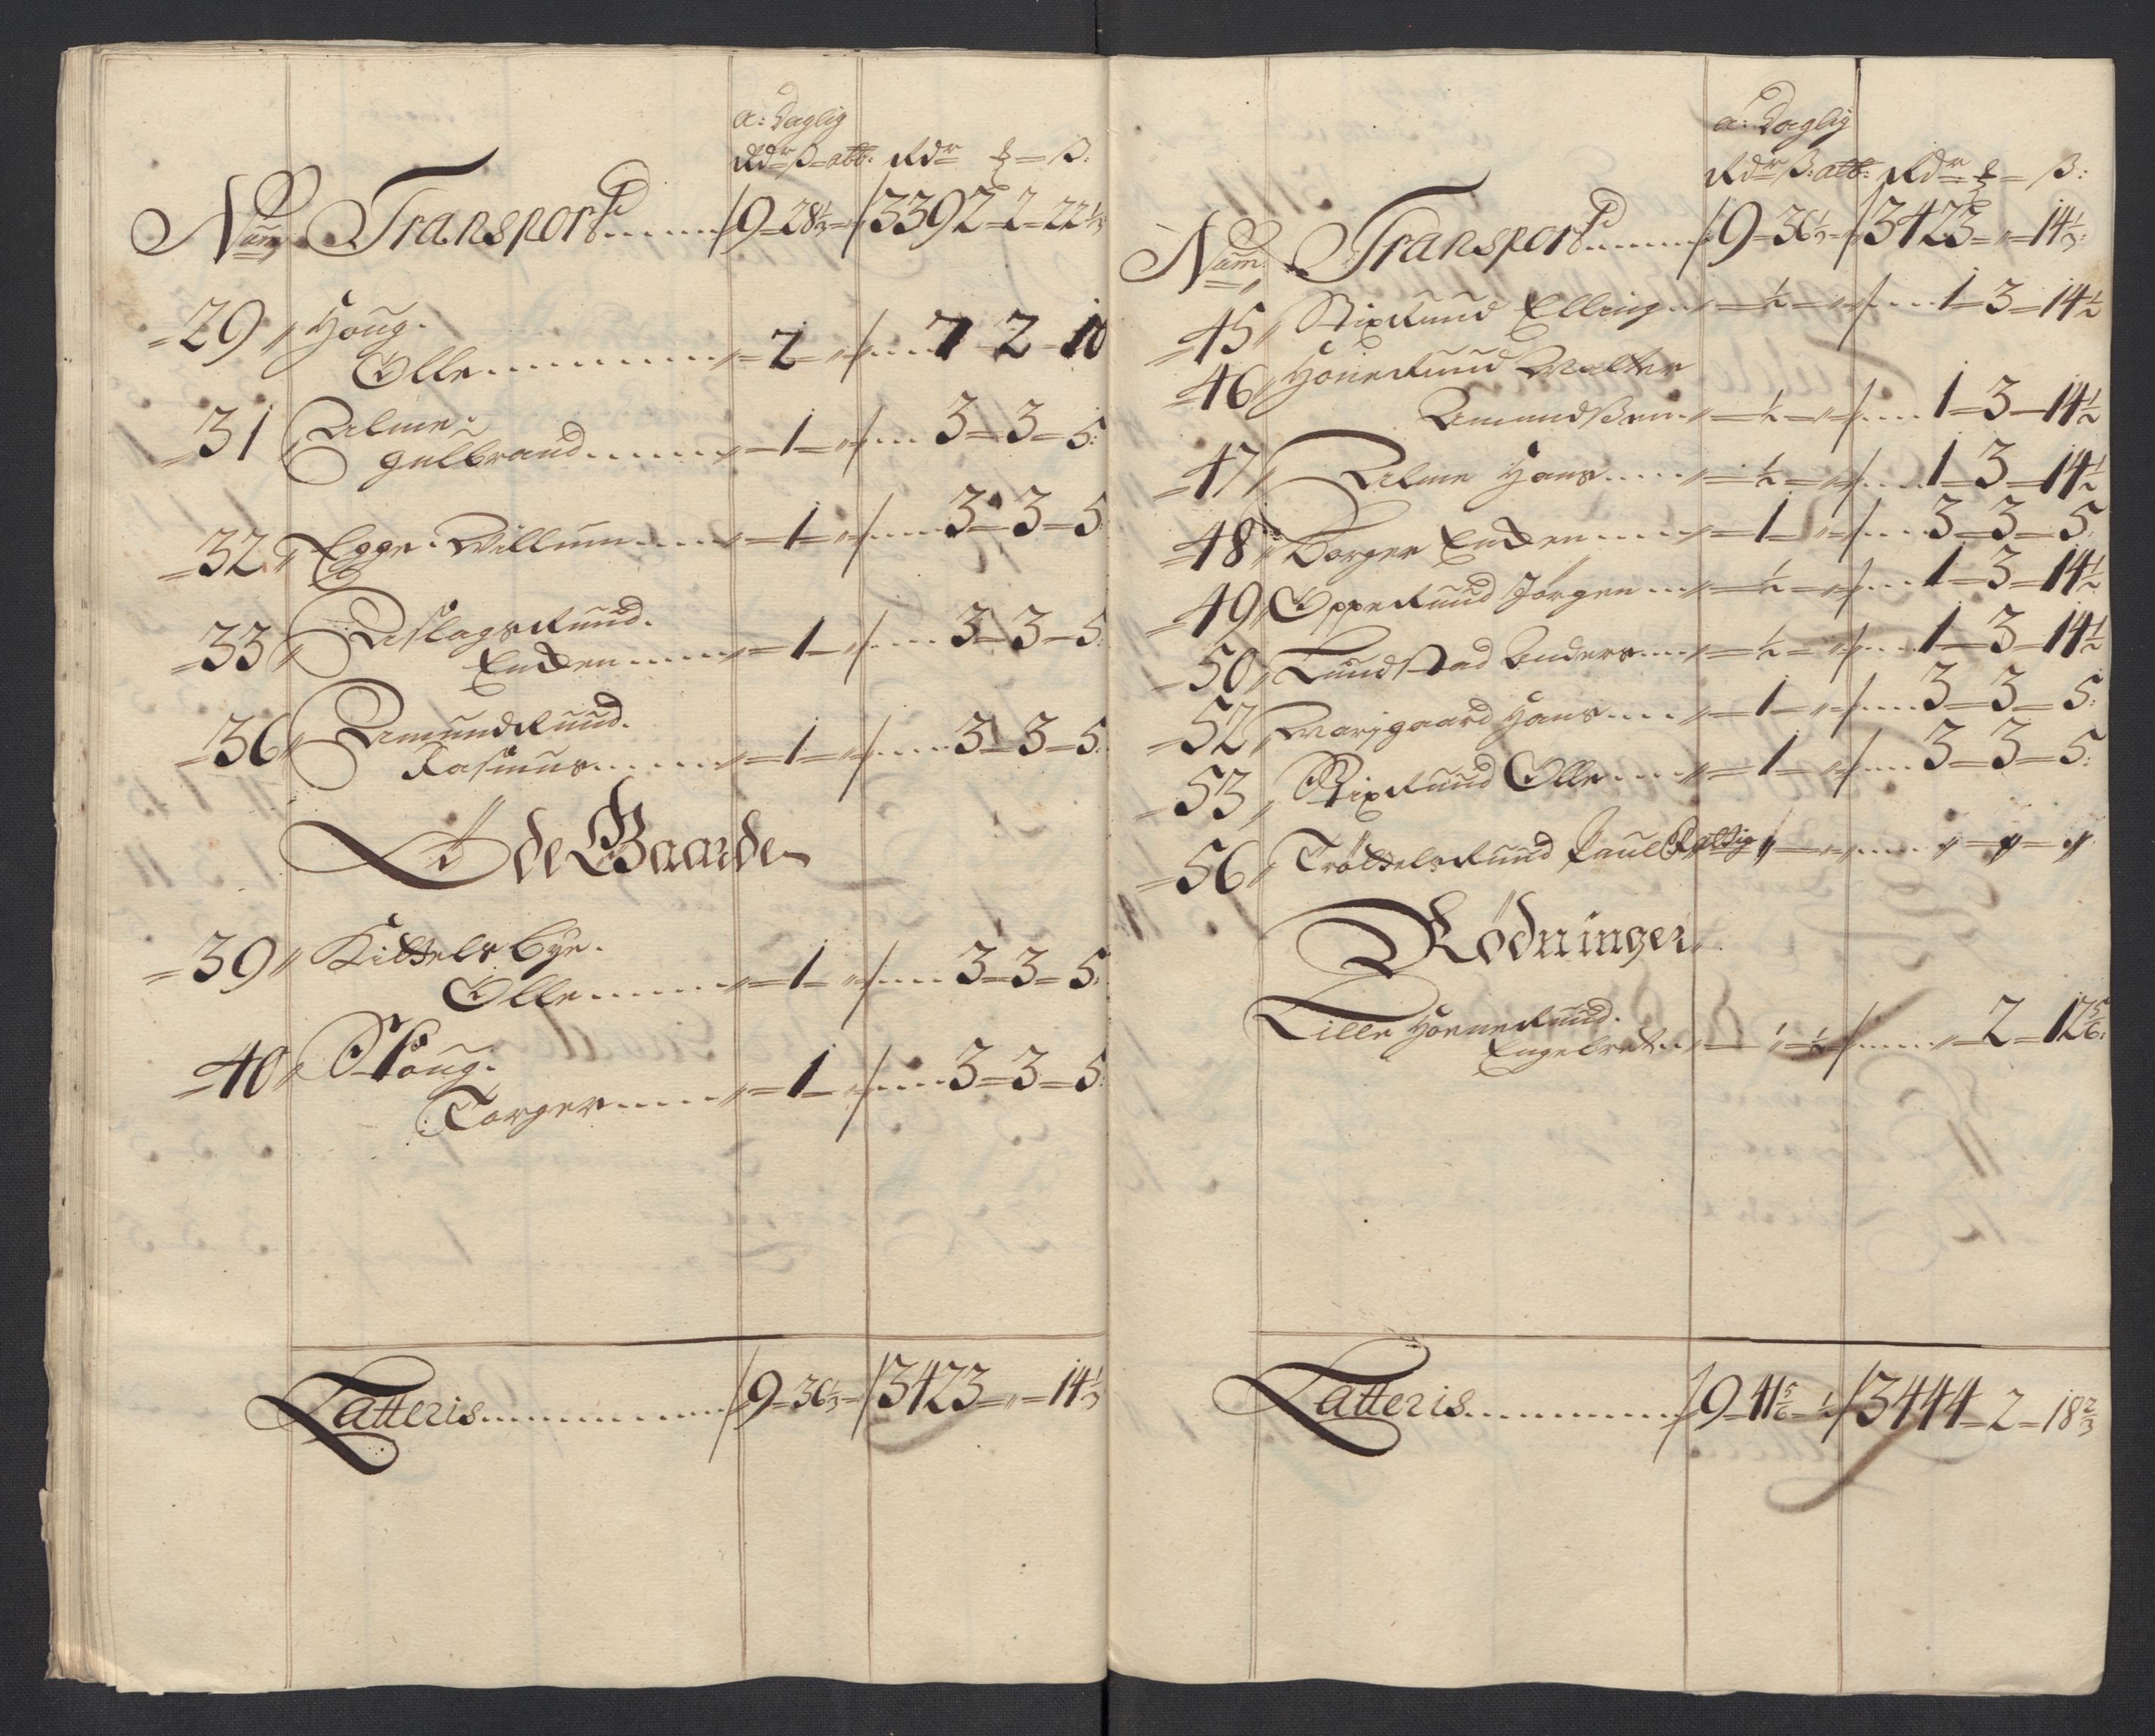 a: Daglig
Rdr ß alb: Rdr ß:
Num Transport 9-28⅓ 3392-2-22⅓
29 Houg.
Olle 2 7-2-10
31 Alme
gulbrand 1 3-3-5:
32 Egge Willum 1 3-3-5
33 AslagsRuud.
Enden 1 3-3-5:
36 AmundRuud.
Rasmus 1 3-3-5:
Øde Gaarde
39 Kittelsbye.
Olle 1 3-3-5:
40 Skoug.
Torger 1 3-3-5:
Latteris 9-36⅓ 3423-"-14⅓
a: Daglig
Rdr ß: alb: Rdr ß:
Num Transport 9-36⅓ 3423-"-14⅓:
45 StixRuud Elling ½ 1-3-14½
46 HoneRuud
Amundßen ½ 1-3-14½
47 Alme Hans ½ 1-3-14½
48 Borger Enden 1 3-3-5:
49 OppeRuud Jörgen ½ 1-3-14½
50 Lundstad Anders ½ 1-3-14½
52 Hans 1 3-3-5:
53 StixRuud Olle 1 3-3-5:
56 TröttelsRuud Paul fattig " " "
Rødninger
Lille HonneRuud.
Engebret ½ " 2-12⅚:
Latteris 9-41⅚ 3444-2-18⅔